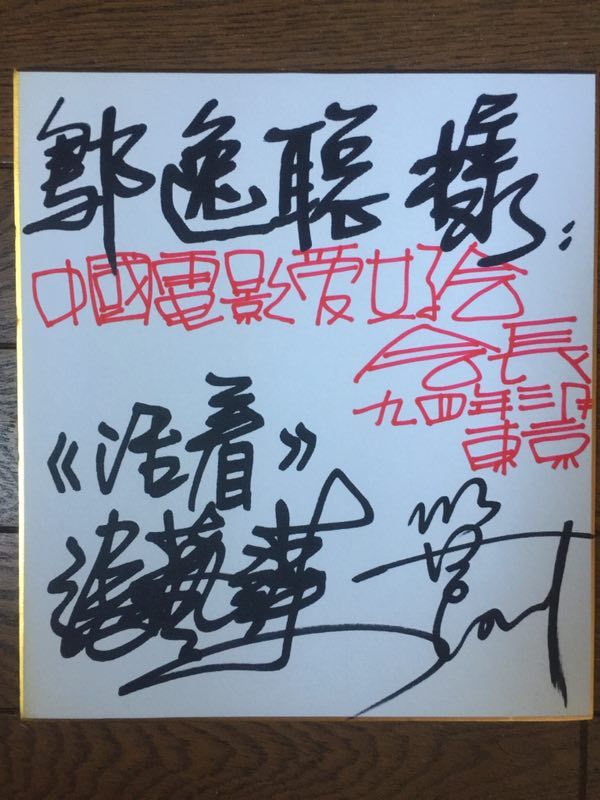 鄒逸聰 様:
中國電影爱好会
会長
九四年三月
東京
《活着》
張藝謀